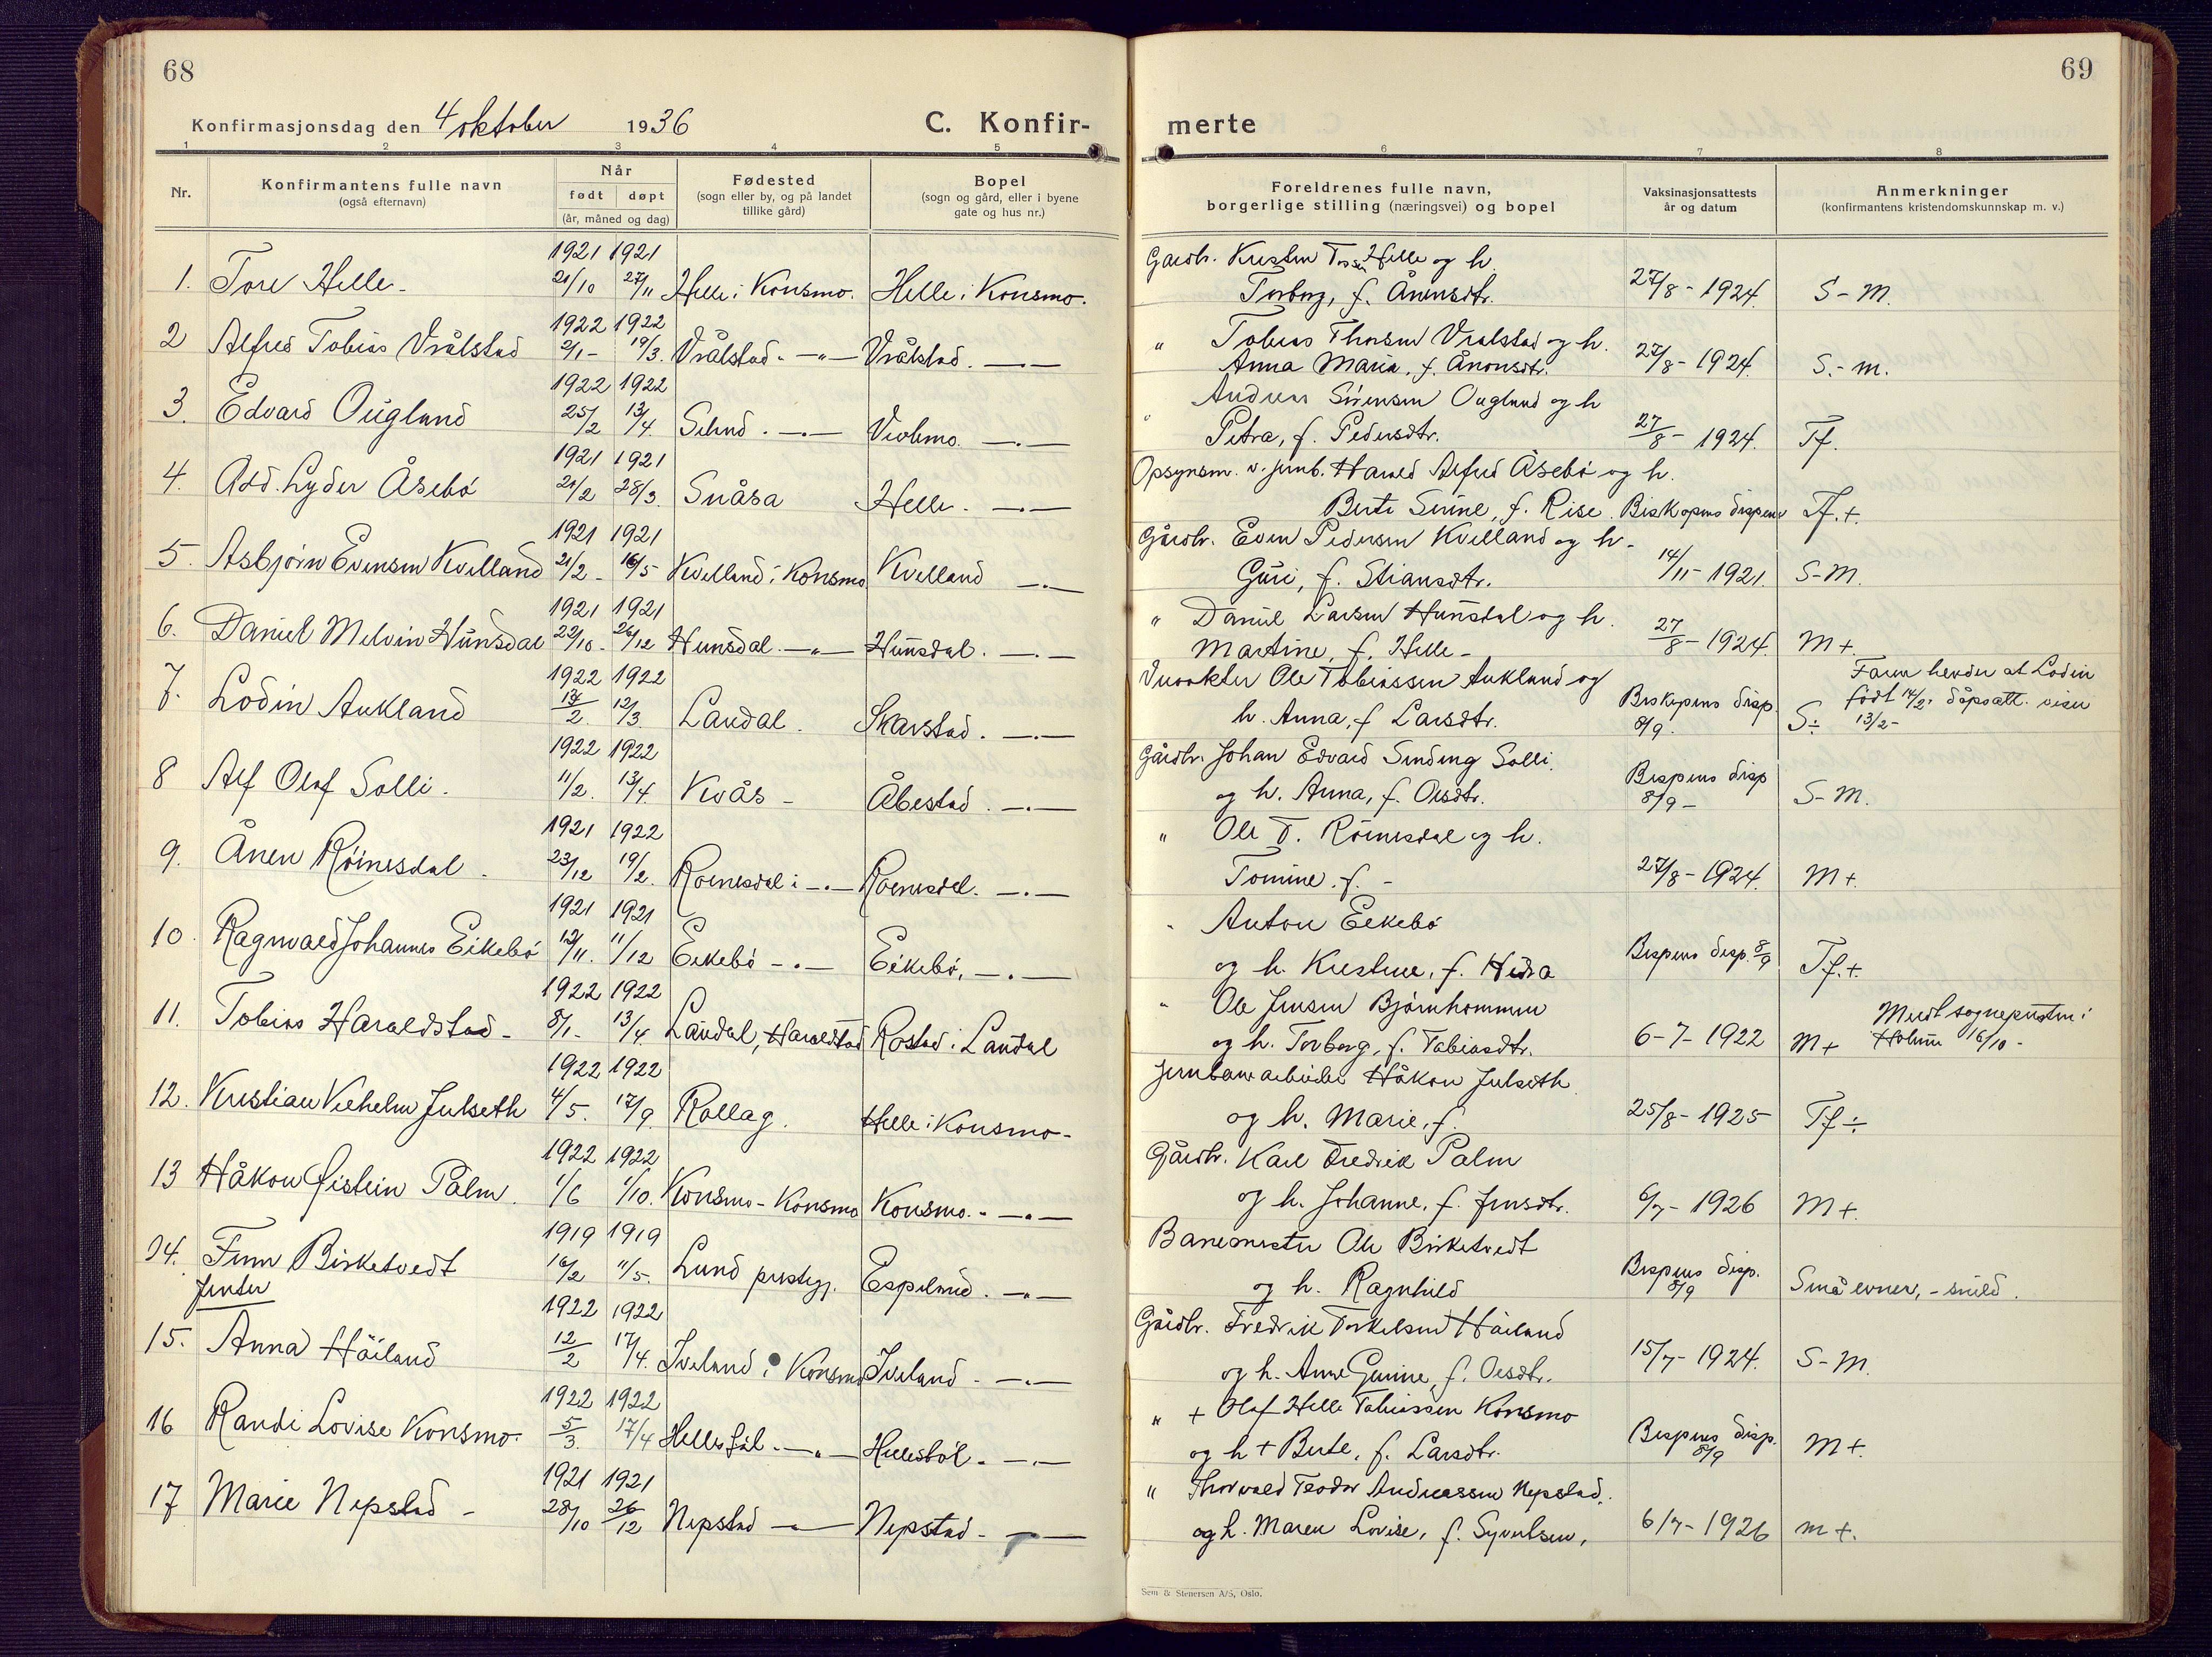 68
Konfirmasjonsdag den 4 oktober 1936
C. Konfir-
1 2 3 4 5
Nr.
Konfirmantens fulle navn
(også efternavn)
Når
født døpt
(år, måned og dag)
Fødested
(sogn eller by, og på landet
tillike gård)
Bopel
(sogn og gård, eller i byene
gate og hus nr.)
1921 1921
1. Tore Helle. 21/10 27/11 Helle i Konsmo. Helle i Konsmo.
1922 1922
2 Alfred Tobias Vrålstad 2/1 - 19/3. Vrålstad. —"— Vrålstad. —"—
1922 1922
3. Edvard Ougland 25/2 13/4. Selund. —"— Violmo. —"—
1921 1921
4. Odd Lyder Åsebö 21/2 28/3. Snåsa Helle. —"—
1921 1921
5. Asbjørn Evensen Kvelland 21/2 - 16/5 Kvelland i Konsmo Kvelland —"—
1921 1921
6. Daniel Melvin Hunsdal 22/10 - 26/12 Hunsdal. —"— Hunsdal. —"—
1922 1922
7. Lodin Aukland 13/2. 12/3. Laudal. Skarstad. —"—
1922 1922
8 Alf Olaf Solli. 11/2. 13/4. Kvås - Åbestad. —"—
1921 1922
9. Ånen Röinesdal. 23/12 19/2. Roenesdal i —"— Roenesdal. —"—
1921 1921
10. Ragnvald Johannes Eikebö 12/11. 11/12 Eikebö —"— Eikebö, —"—
1922 1922
11. Tobias Haraldstad - 8/1 - 13/4 Laudal, Haraldstad Rostad i Laudal
1922 1922
12. Kristian Vilhelm Julseth 4/5. 17/9. Rollag. Helle i Konsmo -
1922 1922
13 Håkon Øistein Palm. 1/6 1/10. Konsmo - Konsmo Konsmo. —"—
1919 1919
14. Finn Birketvedt 16/2 11/5. Lund prestegj. Espelund. —"—
Jenter
1922 1922
15. Anna Höiland 12/2 17/4. Iveland i Konsmo Iveland. —"—
1922 1922
16 Randi Lovise Konsmo. 5/3. 17/4 Hellesböl. —"— Hellesböl. —"—
1921 1921
17 Marie Nepstad - 28/10 26/12 Nepstad —"— Nepstad. —"—
69
merte
6 7 8
Foreldrenes fulle navn,
borgerlige stilling (næringsvei) og bopel
Vaksinasjonsattests
år og datum
Anmerkninger
(konfirmantens kristendomskunnskap m. v.)
Gårdbr. Kristen Helle og h.
Torborg, f. Ånensdtr. 27/8 - 1924. S - M.
" Tobias Thorsen Vralstad og h.
Anna Maria, f. Ånonsdtr. 27/8 - 1924. S. - m.
" Andreas Sörensen Ougland og h
Petra, f. Pedersdtr. 27/8 - 1924. Tf.
Opsynsm. v. jernb. Harald Alfred Åsebö og h.
Berte Serine, f. Rise. Biskopens dispens Tf. +.
Gårdbr. Even Pedersen Kvelland og h.
Guri, f. Stiansdtr. 14/11 - 1921. S - M.
" Daniel Larsen Hunsdal og h.
Martine, f. Helle - 27/8 - 1924. M +.
Ole Tobiassen Aukland og
h. Anna, f. Larsdtr. Biskopens disp. 8/9. S ÷
Faren hevder at Lodin
født 14/2. dåpsatt. viser
13/2 -
Gårdbr. Johan Edvard Sinding Solli.
og h. Anna, f. Olsdtr. Bispens disp 8/9 - S - M.
" Ole T. Röinesdal og h.
Tomine, f. - 27/8 - 1924. M +.
" Anton Eikebö
og h. Kristine, f. Hidra Bispens disp. 8/9 Tf. +.
" Ole Jensen Bjørnhommen
og h. Torborg, f. Tobiasdtr. 6 - 7 - 1922 M +
Meldt sogneprsten i
Holum 16/10 -
Jernbanearbeider Håkon Julseth
og h. Marie, f. 25/8 - 1925 Tf ÷
Gårdbr. Karl Fredrik Palm
og h. Johanne, f. Jensdtr. 6/7 - 1926 M +.
Banemester Ole Birketvedt
og h. Ragnhild Bispens disp. 8/9 Små evner, - snild.
Gårdbr. Fredrik Torkelsen Höiland
og h. Anne Gurine, f. Olsdtr. 15/7 - 1924. S - M.
" + Olaf Helle Tobiassen Konsmo
og h + Berte, f. Larsdtr. Bispens disp. 8/9 M +.
" Thorvald Teodor Andreassen Nepstad.
og h. Maren Lovise, f. Syvertsen, 6/7 - 1926 m +.
Sem & Stenersen A/S, Oslo.